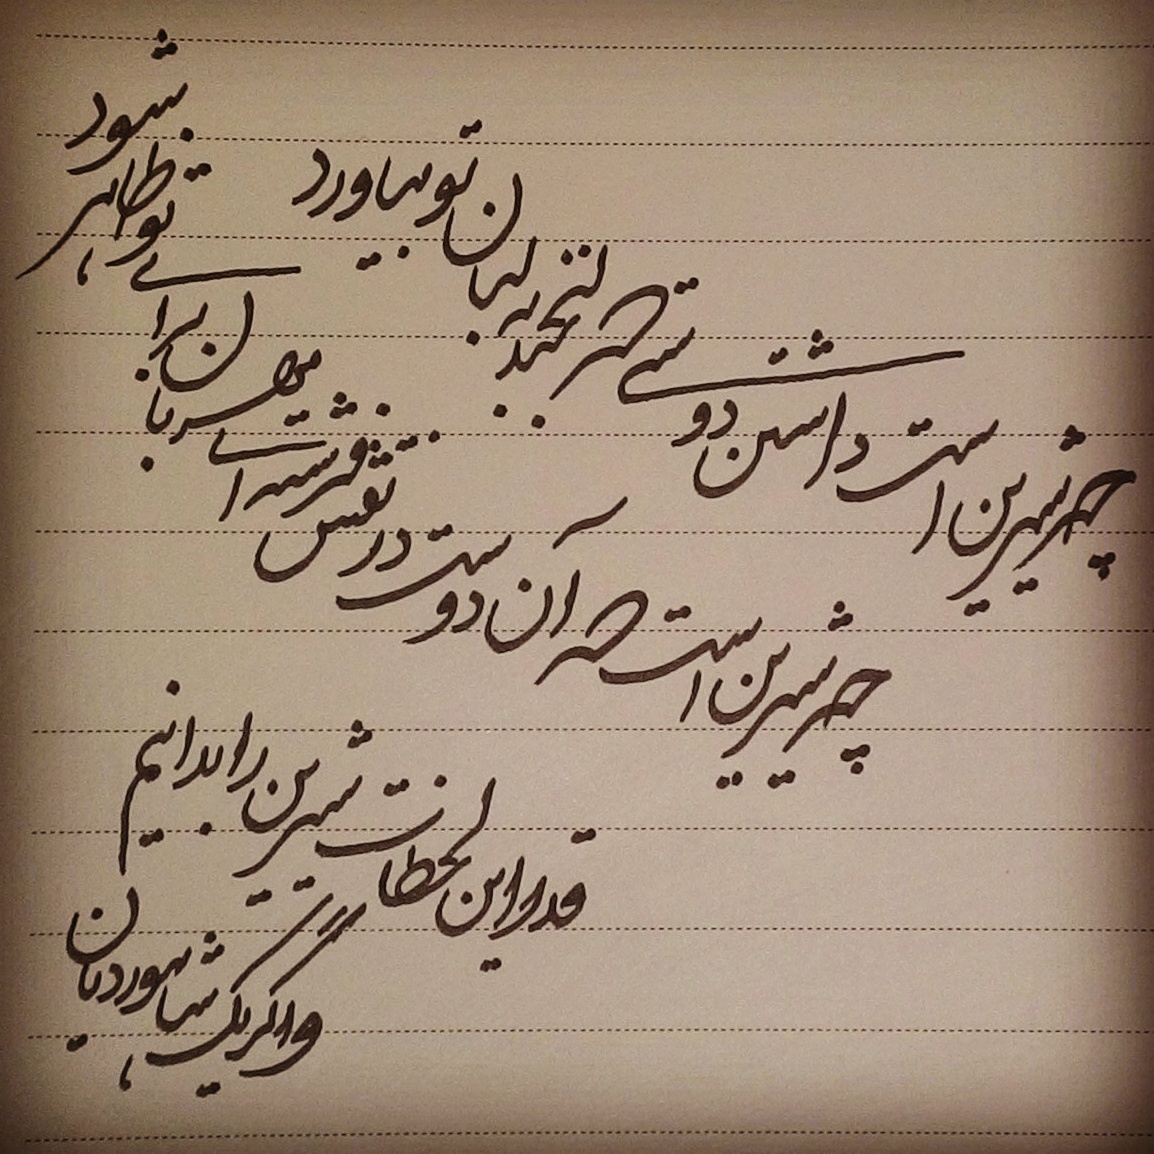 چه شیرین است داشتن دوستی که لبخند به لبان تو بیاورد
چه شیرین است که آن دوست در نقش فرشته ای مهربان برای تو ظاهر شود
قدر این لحظات شیرین را بدانیم
واگریک شاهوردیان